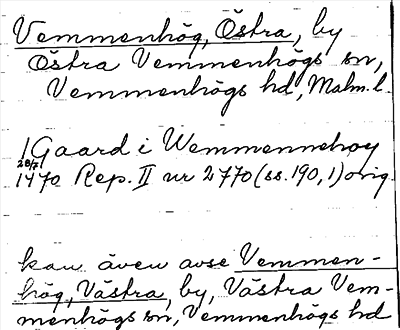 Vemmenhög, Östra, by
Östra Vemmenhögs sn,
Vemmenhögs hd, Malm. l.
1 Gaard i Wemmennehoy
28/7
1470 Rep. II nr 2770 (ss. 190, 1) orig.
kan även avse Vemmen-
hög, Västra, by, Västra Vem-
menhögs sn, Vemmenhögs hd